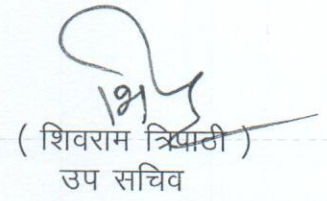 ( शिवराम त्रिपाठी )
उप सचिव